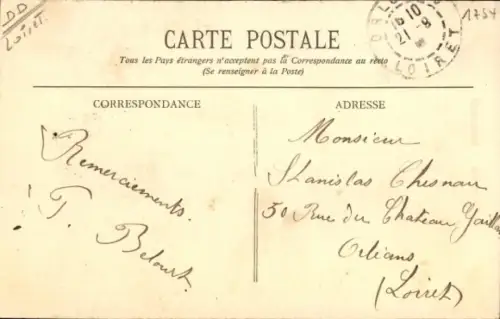 DD
Loiret.
1754
ORLÉANS
16 10
21-9
LOIRET
CARTE POSTALE
Tous les Pays étrangers n'acceptent pas la Correspondance au recto
(Se renseigner à la Poste)
CORRESPONDANCE
Remerciements.
T. Belourt
ADRESSE
Monsieur
Stanislas Chesnau
50 Rue du Chateau Gaillard
Orléans
(Loiret)